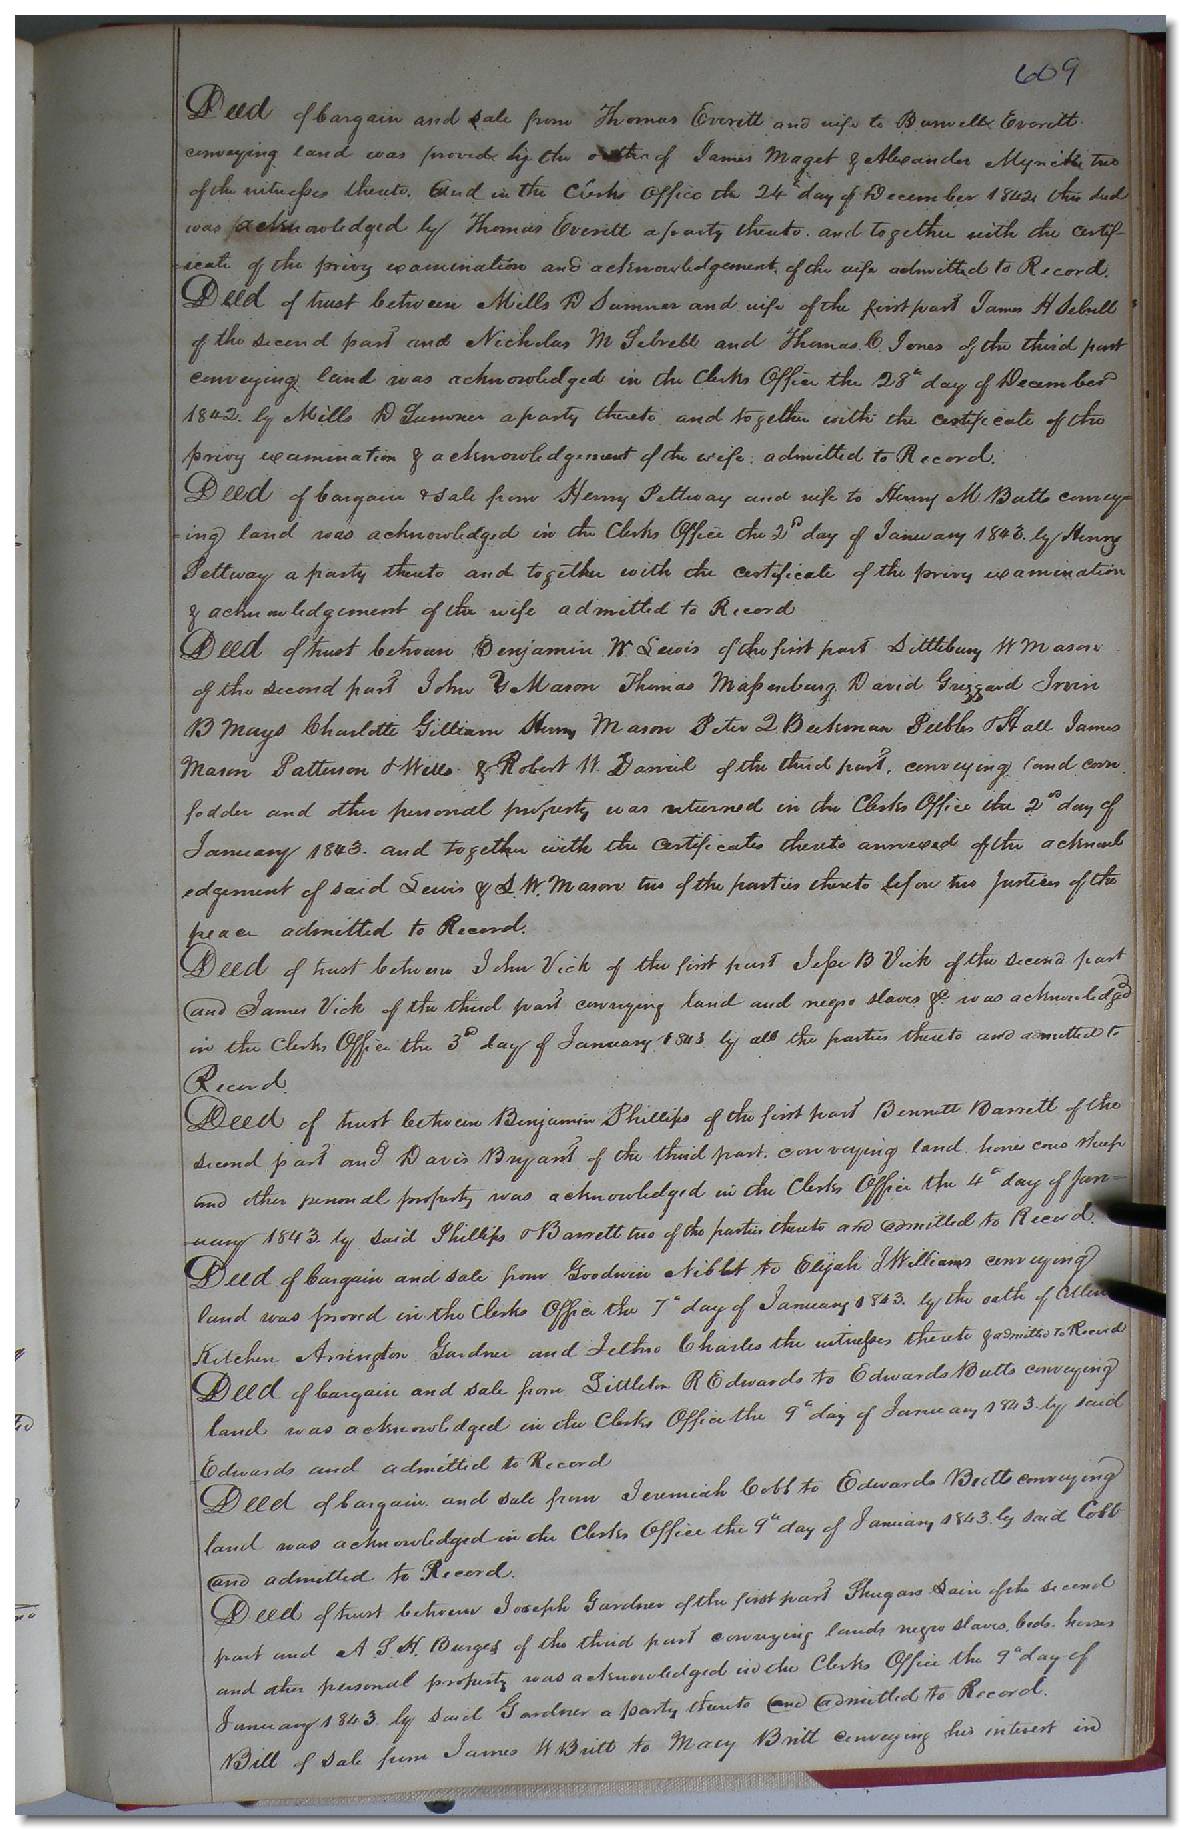 609
Deed of bargain and sale from Thomas Everett and wife to Burwell Everett
conveying land was proved by the oaths of James Maget & Alexander Myrick two
of the witnesses thereto. And in the Clerks Office the 24th day of December 1842 this deed
was acknowledged by Thomas Everett a party thereto and together with the certif-
-icate of the privy examination and acknowledgement of the wife admitted to Record.
Deed of trust between Mills D Sumner and wife of the first part James H Sebrell
of the second part and Nicholas M Sebrell and Thomas C. Jones of the third part
conveying land was acknowledged in the Clerks Office the 28th day of December
1842. by Mills D Sumner a party thereto and together with the certificate of the
privy examination & acknowledgement of the wife admitted to Record.
Deed of bargain & sale from Henry Pettway and wife to Henry M. Butts convey=
-ing land was acknowledged in the Clerks Office the 2d day of January 1843. by Henry
Pettway a party thereto and together with the certificate of the privy examination
& acknowledgement of the wife admitted to Record
Deed of trust between Benjamin W Lewis of the first part Littlebury W Mason
of the second part John Y Mason Thomas Massenburg David Grizzard Irvin
B Mays Charlotte Gilliam Henry Mason Peter Z Beckman Peebles & Hall James
Mason Patterson & Wells & Robert W. of the third part. conveying land corn
fodder and other personal property was returned in the Clerks Office the 2nd day of
January 1843. and together with the certificates thereto annexed of the acknowl
edgement of said Lewis & L. W. Mason two of the parties thereto before two Justices of the
peace admitted to Record.
Deed of trust between John Vick of the first part Jesse B Vick of the second part
and James Vick of the third part conveying land and negro slaves &c was acknowledged
in the Clerks Office the 3d day of January 1843 by all the parties thereto and admitted to
Record.
Deed of trust between Benjamin Phillips of the first part Bennett Barrett of the
second part and Davis Bryant of the third part. conveying land horses cows sheep
and other personal property was acknowledged in the Clerks Office the 4th day of Jan-
-uary 1843 by said Phillips & Barrett two of the parties thereto and admitted to Record.
Deed of bargain and sale from Goodwin Niblet to Elijah J Williams conveying
land was proved in the Clerks Office the 7th day of January 1843. by the oath of
Kitchen Arrington Gardner and Jethro Charles the witnesses thereto & admitted to Record
Deed of bargain and sale from Littleton R Edwards to Edwards Butts conveying
land was acknowledged in the Clerks Office the 9th day of January 1843. by said
Edwards and admitted to Record
Deed of bargain and sale from Jeremiah Cobb to Edwards Butts conveying
land was acknowledged in the Clerks Office the 9th day of January 1843. by said Cobb
and admitted to Record.
Deed of trust between Joseph Gardner of the first part of the second
part and A S H. Burges of the third part conveying lands negro slaves, beds. horses
and other personal property was acknowledged in the Clerks Office the 9th day of
January 1843. by said Gardner a party thereto and admitted to Record.
Bill of sale from James W Britt to Mary Britt conveying his interest in